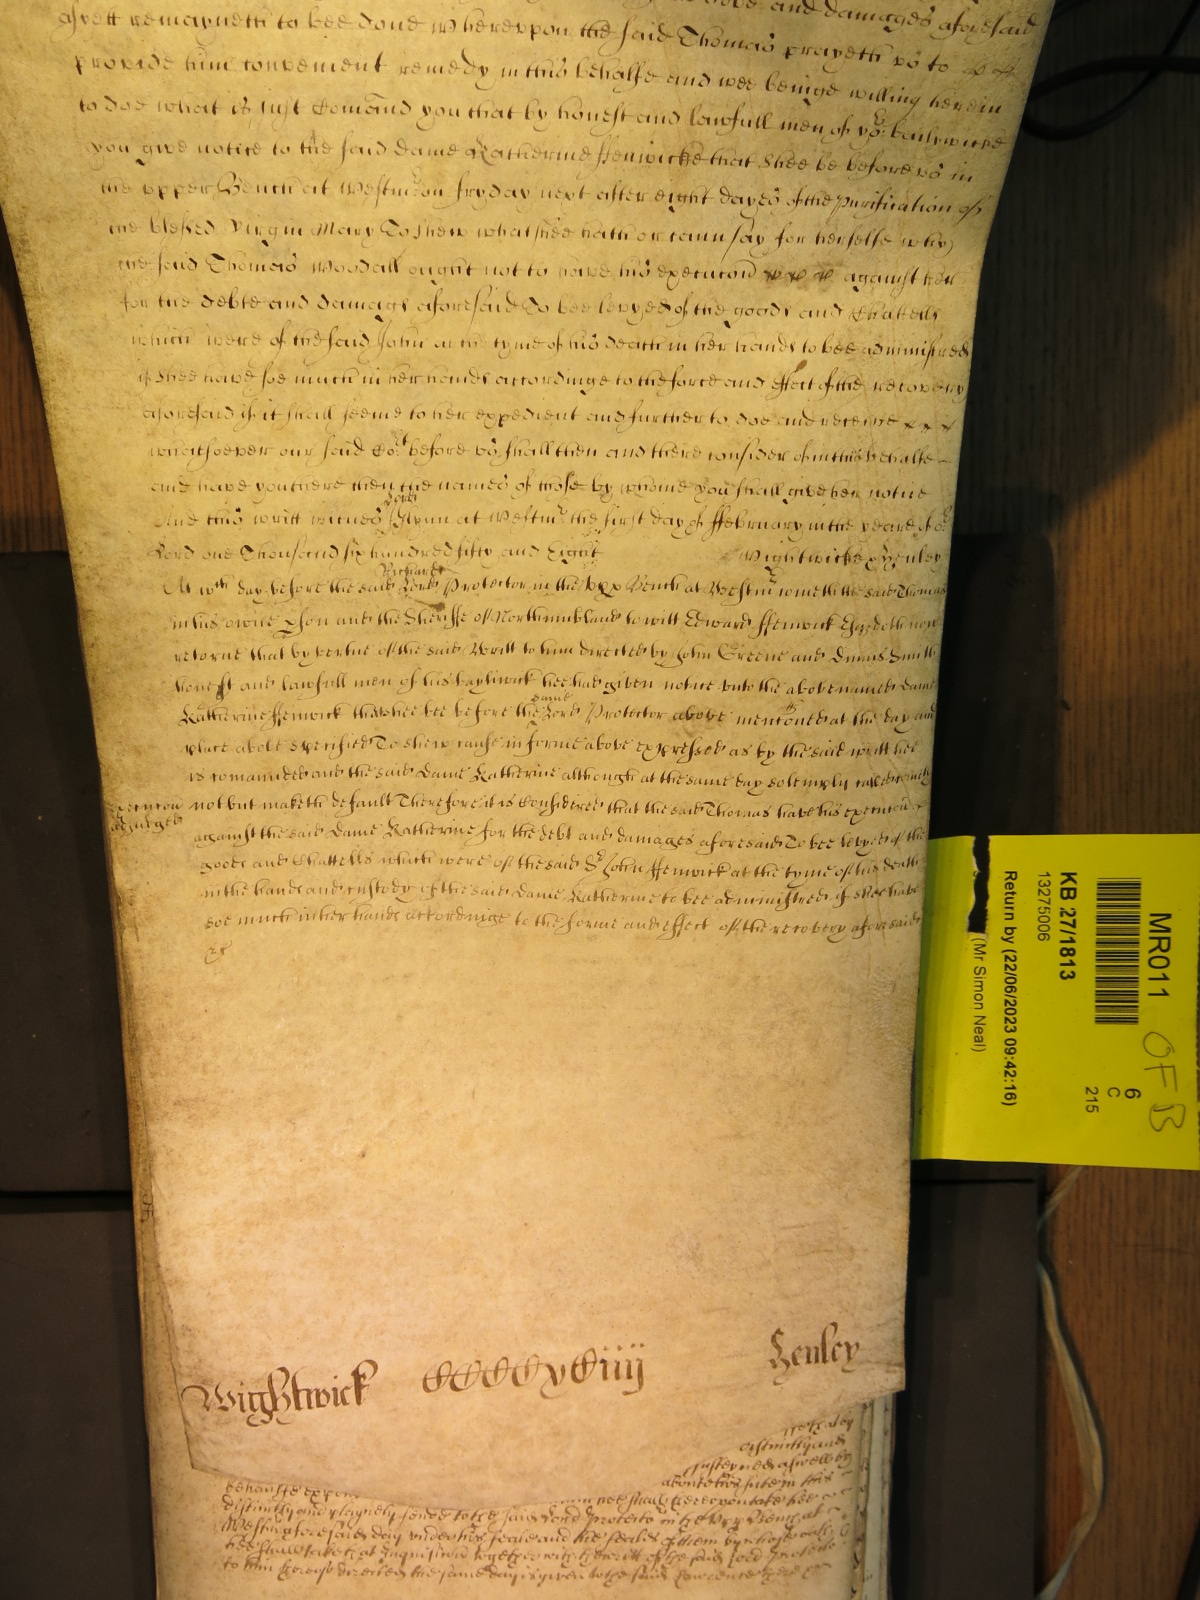 and damages aforesaid
as yett remayneth to bee done Whereuppon the said Thomas prayeth us to
provide him convenient remedy in this behalfe and wee beinge willing herein
to doe what is just Comand you that by honest and lawfull men of yor bailywicke
you give notice to the said Dame Katherine Fenwicke that shee be before us in
the upper Bench at Westmr on fryday next after eight dayes of the Purification of
the blessed Virgin Mary To shew what shee hath or cann say for herselfe why
the said Thomas Woodall ought not to have his execucon against her
for the debte and damags aforesaid To bee levyed of the goods and Chattells
which were of the said John at the tyme of his death in her hands to bee administred
if shee have soe much in her hands accordinge to the force and effect of the recovery
aforesaid if it shall seeme to her expedient and further to doe and receive x x x
whatsoever our said Cort before us shall then and there consider of in this behalfe
and have you there then the names of those by whome you shall give her notice
And this writt witnes John Glynn at Westmr the first day of ffebruary in the yeare of or
Lord one Thousand six hundred fifty and Eight Wightwicke & Henley
At wch day before the said Richard Lord Protector in the Upp Bench at Westmr cometh the said Thomas
in his owne pson and the Sheriffe of Northumbland to witt Edward ffenwick Esq doth now
retorne that by vertue of the said Writt to him directed by John Greene and Dinnis Smith
honest and lawfull men of his bayliwick hee had given notice unto the above named Dame
Katherine ffenwick that shee bee before the same Lord Protector above mentoned at the day and
place above specified To shew cause in forme above expressed as by the said writt hee
is comanded and the said Dame Katherine although at the same day solemnly called cometh
not but maketh default Therefore it is Considered that the said Thomas have his execucon
Execucon
adjudged
against the said Dame Katherine for the debt and damages aforesaid To bee levyed of the
goods and Chattells which were of the said Sr John ffenwick at the tyme of his death
in the hands and custody of the said Dame Katherine to bee administred if shee have
soe much in her hands accordinge to the forme and effect of the recovery aforesaid
&c
Wightwick CCCCxviiij Henley
distinctly and
above this suite in this
distinctly and playnely send to the said Lord Protector in the Upp Bench at
Westmr aforesaid day under his seale and the seales of them by whose oath
hee shall take that Inquisicon together with the writt of the said Lord Protector
to him thereof directed the same day is given to the said Lawrence there &c
MR011
OFB
KB 27/1813
13275006
6
C
215
Return by (22/06/2023 09:42:16)
(Mr Simon Neal)